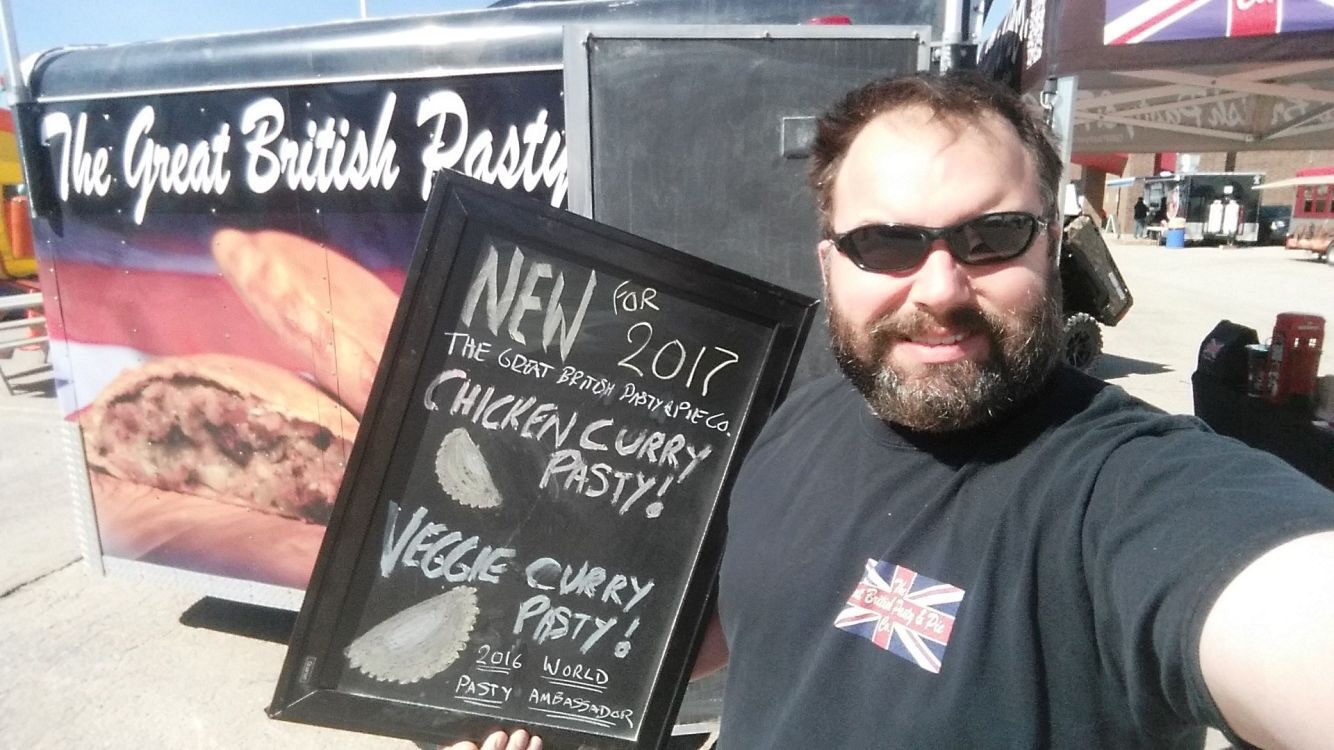 The Great British Pasty
NEW FOR
2017
THE GREAT BRITISH PASTY & PIE CO.
CHICKEN CURRY
PASTY!
VEGGIE CURRY
PASTY!
2016 WORLD
PASTY AMBASSADOR
The
British Pasty & Pie
Co.